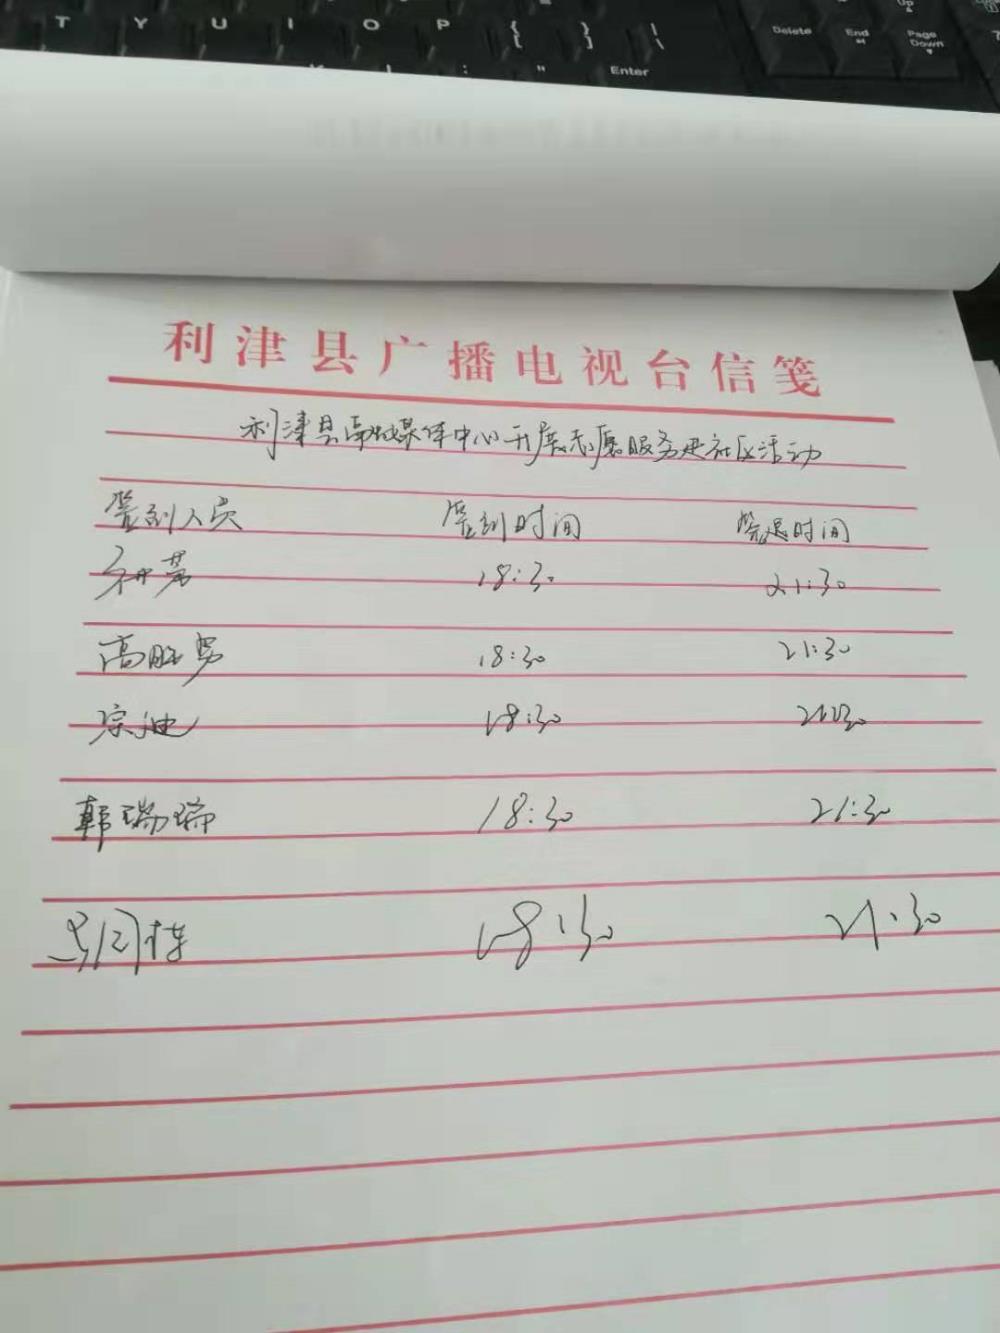 T Y U I O P { } | \
Delete End Page Down
K L : " Enter
利津县广播电视台信笺
利津县融媒体中心开展志愿服务进社区活动
签到人员 签到时间 签退时间
18:30 21:30
高胜男 18:30 21:30
宗迪 18:30 21:30
韩瑞瑞 18:30 21:30
18:30 21:30